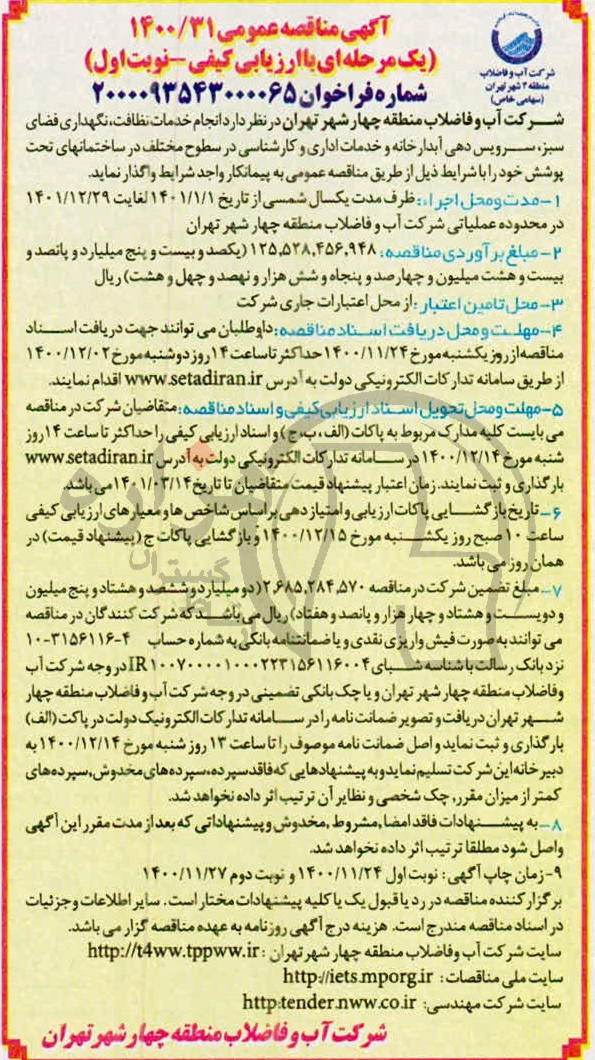 شرکت آب و فاضلاب
منطقه ۴ شهر تهران
(سهامی خاص)
آگهی مناقصه عمومی ۱۴۰۰/۳۱
(یک مرحله‌ای با ارزیابی کیفی - نوبت اول)
شماره فراخوان ۲۰۰۰۰۹۳۵۴۳۰۰۰۰۶۵
شرکت آب و فاضلاب منطقه چهار شهر تهران در نظر دارد انجام خدمات نظافت، نگهداری فضای
سبز، سرویس دهی آبدارخانه و خدمات اداری و کارشناسی در سطوح مختلف در ساختمانهای تحت
پوشش خود را با شرایط ذیل از طریق مناقصه عمومی به پیمانکار واجد شرایط واگذار نماید.
۱- مدت و محل اجراء: ظرف مدت یکسال شمسی از تاریخ ۱۴۰۱/۱/۱ لغایت ۱۴۰۱/۱۲/۲۹
در محدوده عملیاتی شرکت آب و فاضلاب منطقه چهار شهر تهران
۲- مبلغ برآوردی مناقصه: ۱۲۵,۵۲۸,۴۵۶,۹۴۸ (یکصد و بیست و پنج میلیارد و پانصد و
بیست و هشت میلیون و چهارصد و پنجاه و شش هزار و نهصد و چهل و هشت) ریال
۳- محل تامین اعتبار: از محل اعتبارات جاری شرکت
۴- مهلت و محل دریافت اسناد مناقصه: داوطلبان می توانند جهت دریافت اسناد
مناقصه از روز یکشنبه مورخ ۱۴۰۰/۱۱/۲۴ حداکثر تا ساعت ۱۴ روز دوشنبه مورخ ۱۴۰۰/۱۲/۰۲
از طریق سامانه تدارکات الکترونیکی دولت به آدرس www.setadiran.ir اقدام نمایند.
۵- مهلت و محل تحویل اسناد ارزیابی کیفی و اسناد مناقصه: متقاضیان شرکت در مناقصه
می بایست کلیه مدارک مربوط به پاکات (الف، ب، ج) و اسناد ارزیابی کیفی را حداکثر تا ساعت ۱۴ روز
شنبه مورخ ۱۴۰۰/۱۲/۱۴ در سامانه تدارکات الکترونیکی دولت به آدرس www.setadiran.ir
بارگذاری و ثبت نمایند. زمان اعتبار پیشنهاد قیمت متقاضیان تا تاریخ ۱۴۰۱/۰۳/۱۴ می باشد.
۶- تاریخ بازگشایی پاکات ارزیابی و امتیازدهی براساس شاخص ها و معیارهای ارزیابی کیفی
ساعت ۱۰ صبح روز یکشنبه مورخ ۱۴۰۰/۱۲/۱۵ و بازگشایی پاکات ج (پیشنهاد قیمت) در
همان روز می باشد.
۷- مبلغ تضمین شرکت در مناقصه ۲,۶۸۵,۲۸۴,۵۷۰ (دو میلیارد و ششصد و هشتاد و پنج میلیون
و دویست و هشتاد و چهار هزار و پانصد و هفتاد) ریال می باشد که شرکت کنندگان در مناقصه
می توانند به صورت فیش واریزی نقدی و یا ضمانتنامه بانکی به شماره حساب ۴-۳۱۵۶۱۱۶-۱۰
نزد بانک رسالت با شناسه شبای IR۱۰۰۷۰۰۰۰۱۰۰۰۲۲۳۱۵۶۱۱۶۰۰۴ در وجه شرکت آب
وفاضلاب منطقه چهار شهر تهران و یا چک بانکی تضمینی در وجه شرکت آب و فاضلاب منطقه چهار
شهر تهران دریافت و تصویر ضمانت نامه را در سامانه تدارکات الکترونیک دولت در پاکت (الف)
بارگذاری و ثبت نماید و اصل ضمانت نامه موصوف را تا ساعت ۱۳ روز شنبه مورخ ۱۴۰۰/۱۲/۱۴ به
دبیرخانه این شرکت تسلیم نماید و به پیشنهادهایی که فاقد سپرده، سپرده های مخدوش, سپرده های
کمتر از میزان مقرر, چک شخصی و نظایر آن ترتیب اثر داده نخواهد شد.
۸- به پیشنهادات فاقد امضا, مشروط, مخدوش و پیشنهاداتی که بعد از مدت مقرر این آگهی
واصل شود مطلقا ترتیب اثر داده نخواهد شد.
۹- زمان چاپ آگهی: نوبت اول ۱۴۰۰/۱۱/۲۴ و نوبت دوم ۱۴۰۰/۱۱/۲۷
برگزارکننده مناقصه در رد یا قبول یک یا کلیه پیشنهادات مختار است. سایر اطلاعات و جزئیات
در اسناد مناقصه مندرج است. هزینه درج آگهی روزنامه به عهده مناقصه گزار می باشد.
سایت شرکت آب و فاضلاب منطقه چهار شهر تهران: http://t4ww.tppww.ir
سایت ملی مناقصات: http://iets.mporg.ir
سایت شرکت مهندسی: http:tender.nww.co.ir
شرکت آب و فاضلاب منطقه چهار شهر تهران